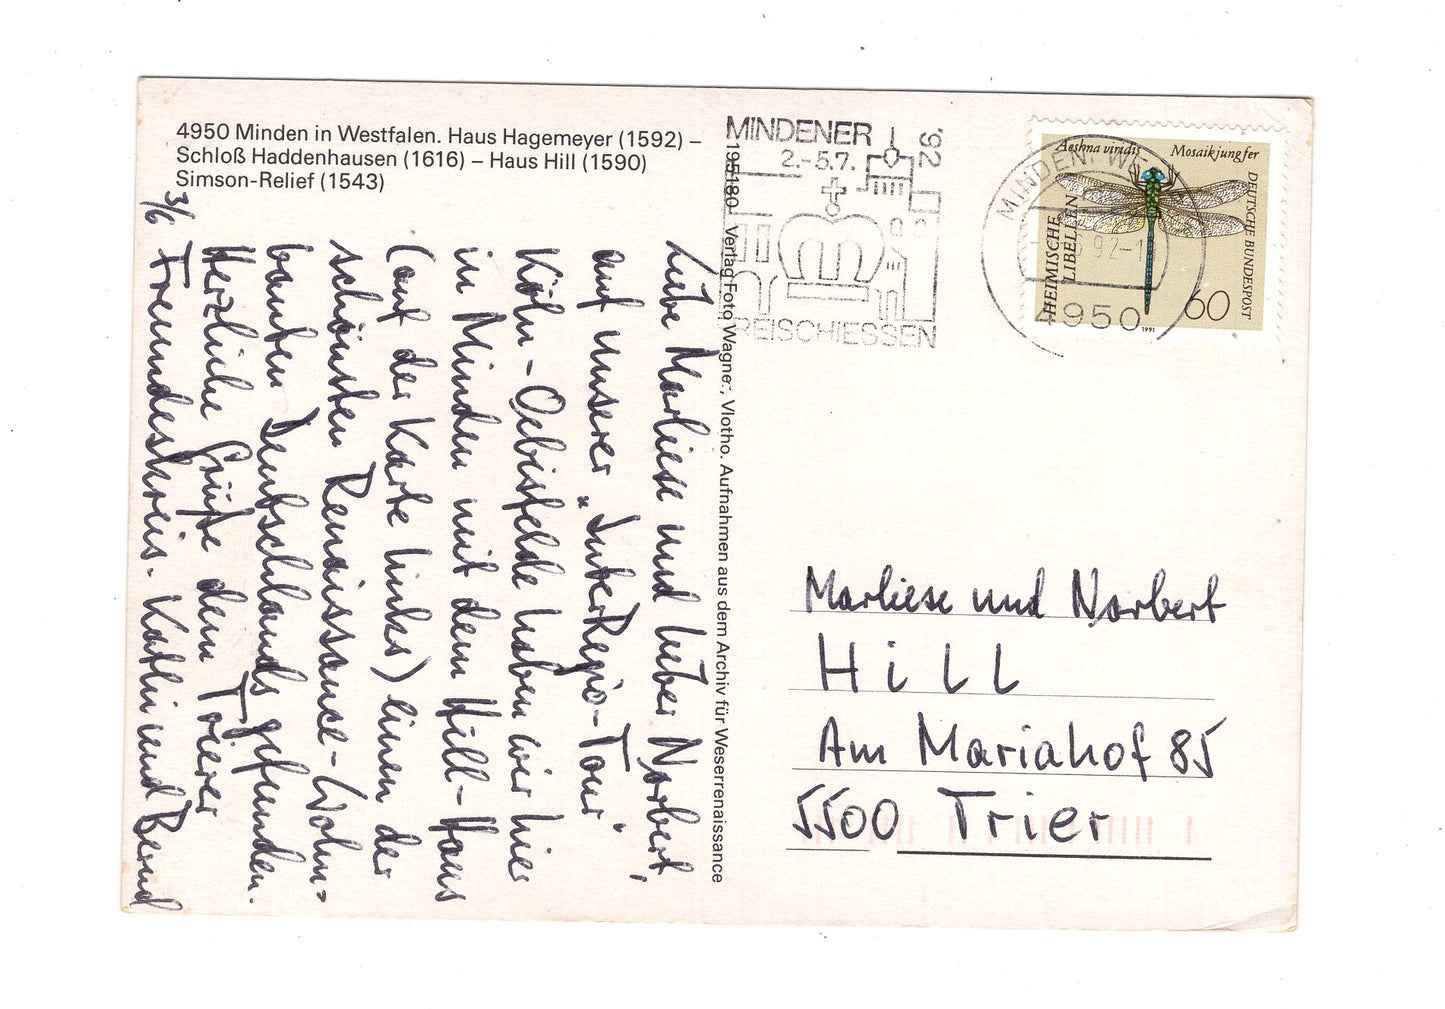 4950 Minden in Westfalen. Haus Hagemeyer (1592) –
Schloß Haddenhausen (1616) – Haus Hill (1590)
Simson-Relief (1543)
3/6
Liebe Marliese und lieber Norbert,
auf unserer „InterRegio-Tour"
Köln-Oebisfelde haben wir hier
in Minden mit dem Hill-Haus
(auf der Karte links) einen der
schönsten Renaissance-Wohn-
bauten Deutschlands gefunden.
Herzliche Grüße dem Trierer
Freundeskreis. Kathi und Bernd
195180 Verlag Foto Wagner, Vlotho. Aufnahmen aus dem Archiv für Weserrenaissance
MINDENER
2.-5.7.
'92
FREISCHIESSEN
MINDEN, WE
92-1
4950
Aeshna viridis Mosaikjungfer
HEIMISCHE
LIBELLEN
DEUTSCHE BUNDESPOST
60
1991
Marliese und Norbert
Hill
Am Mariahof 85
5500 Trier